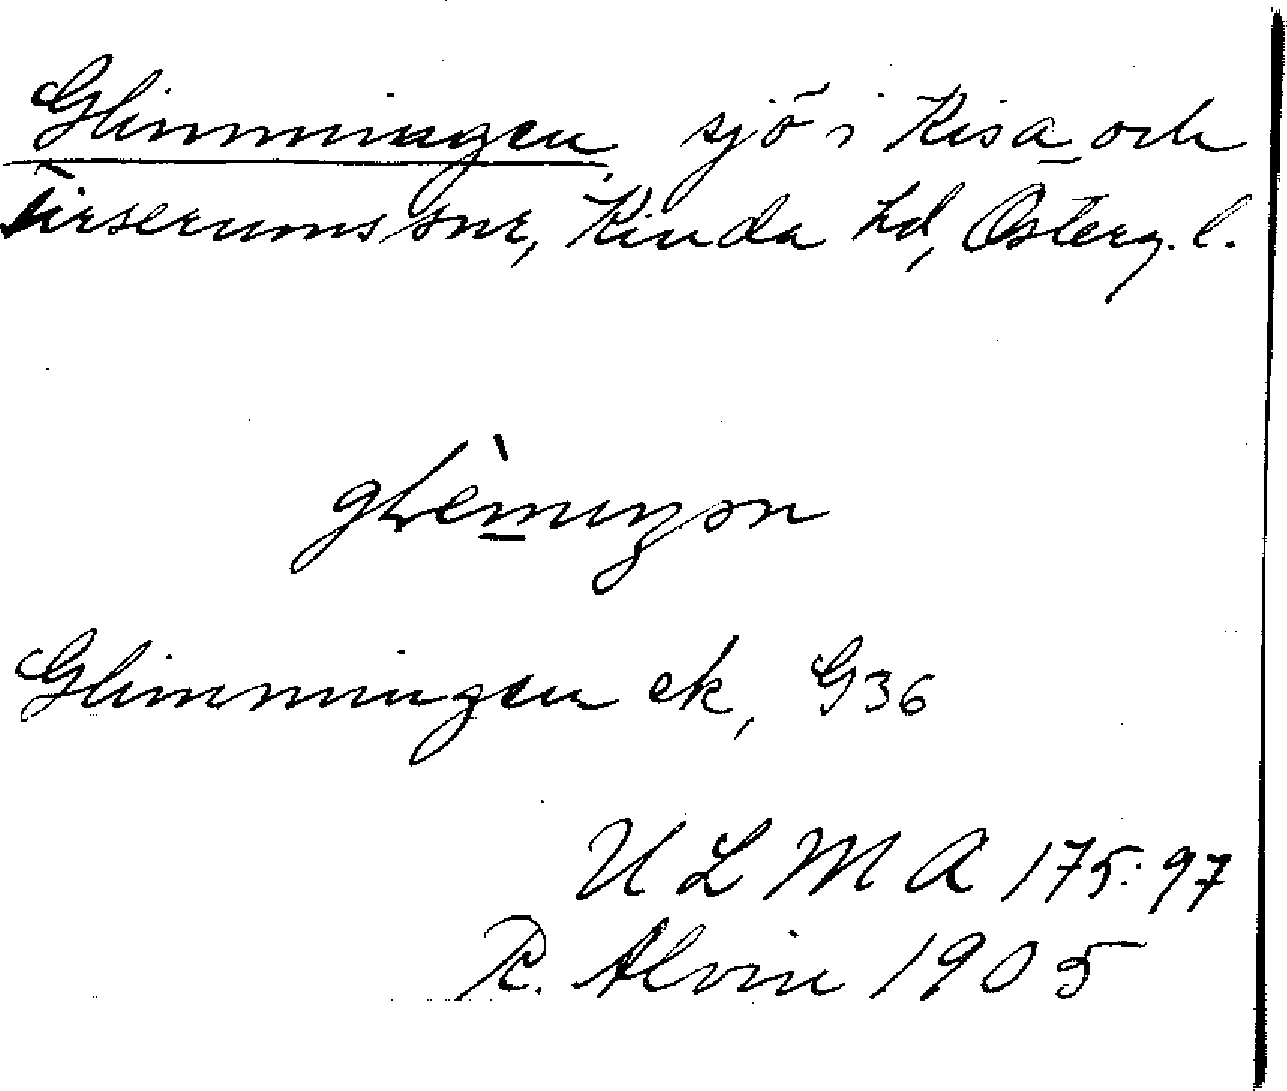 Glimmingen, sjö i Kisa och
Tirserums snr, Kinda hd, Österg. l.
glèmuŋən
Glimmingen ek, G36
U L M A 175:97
R. Alvin 1905